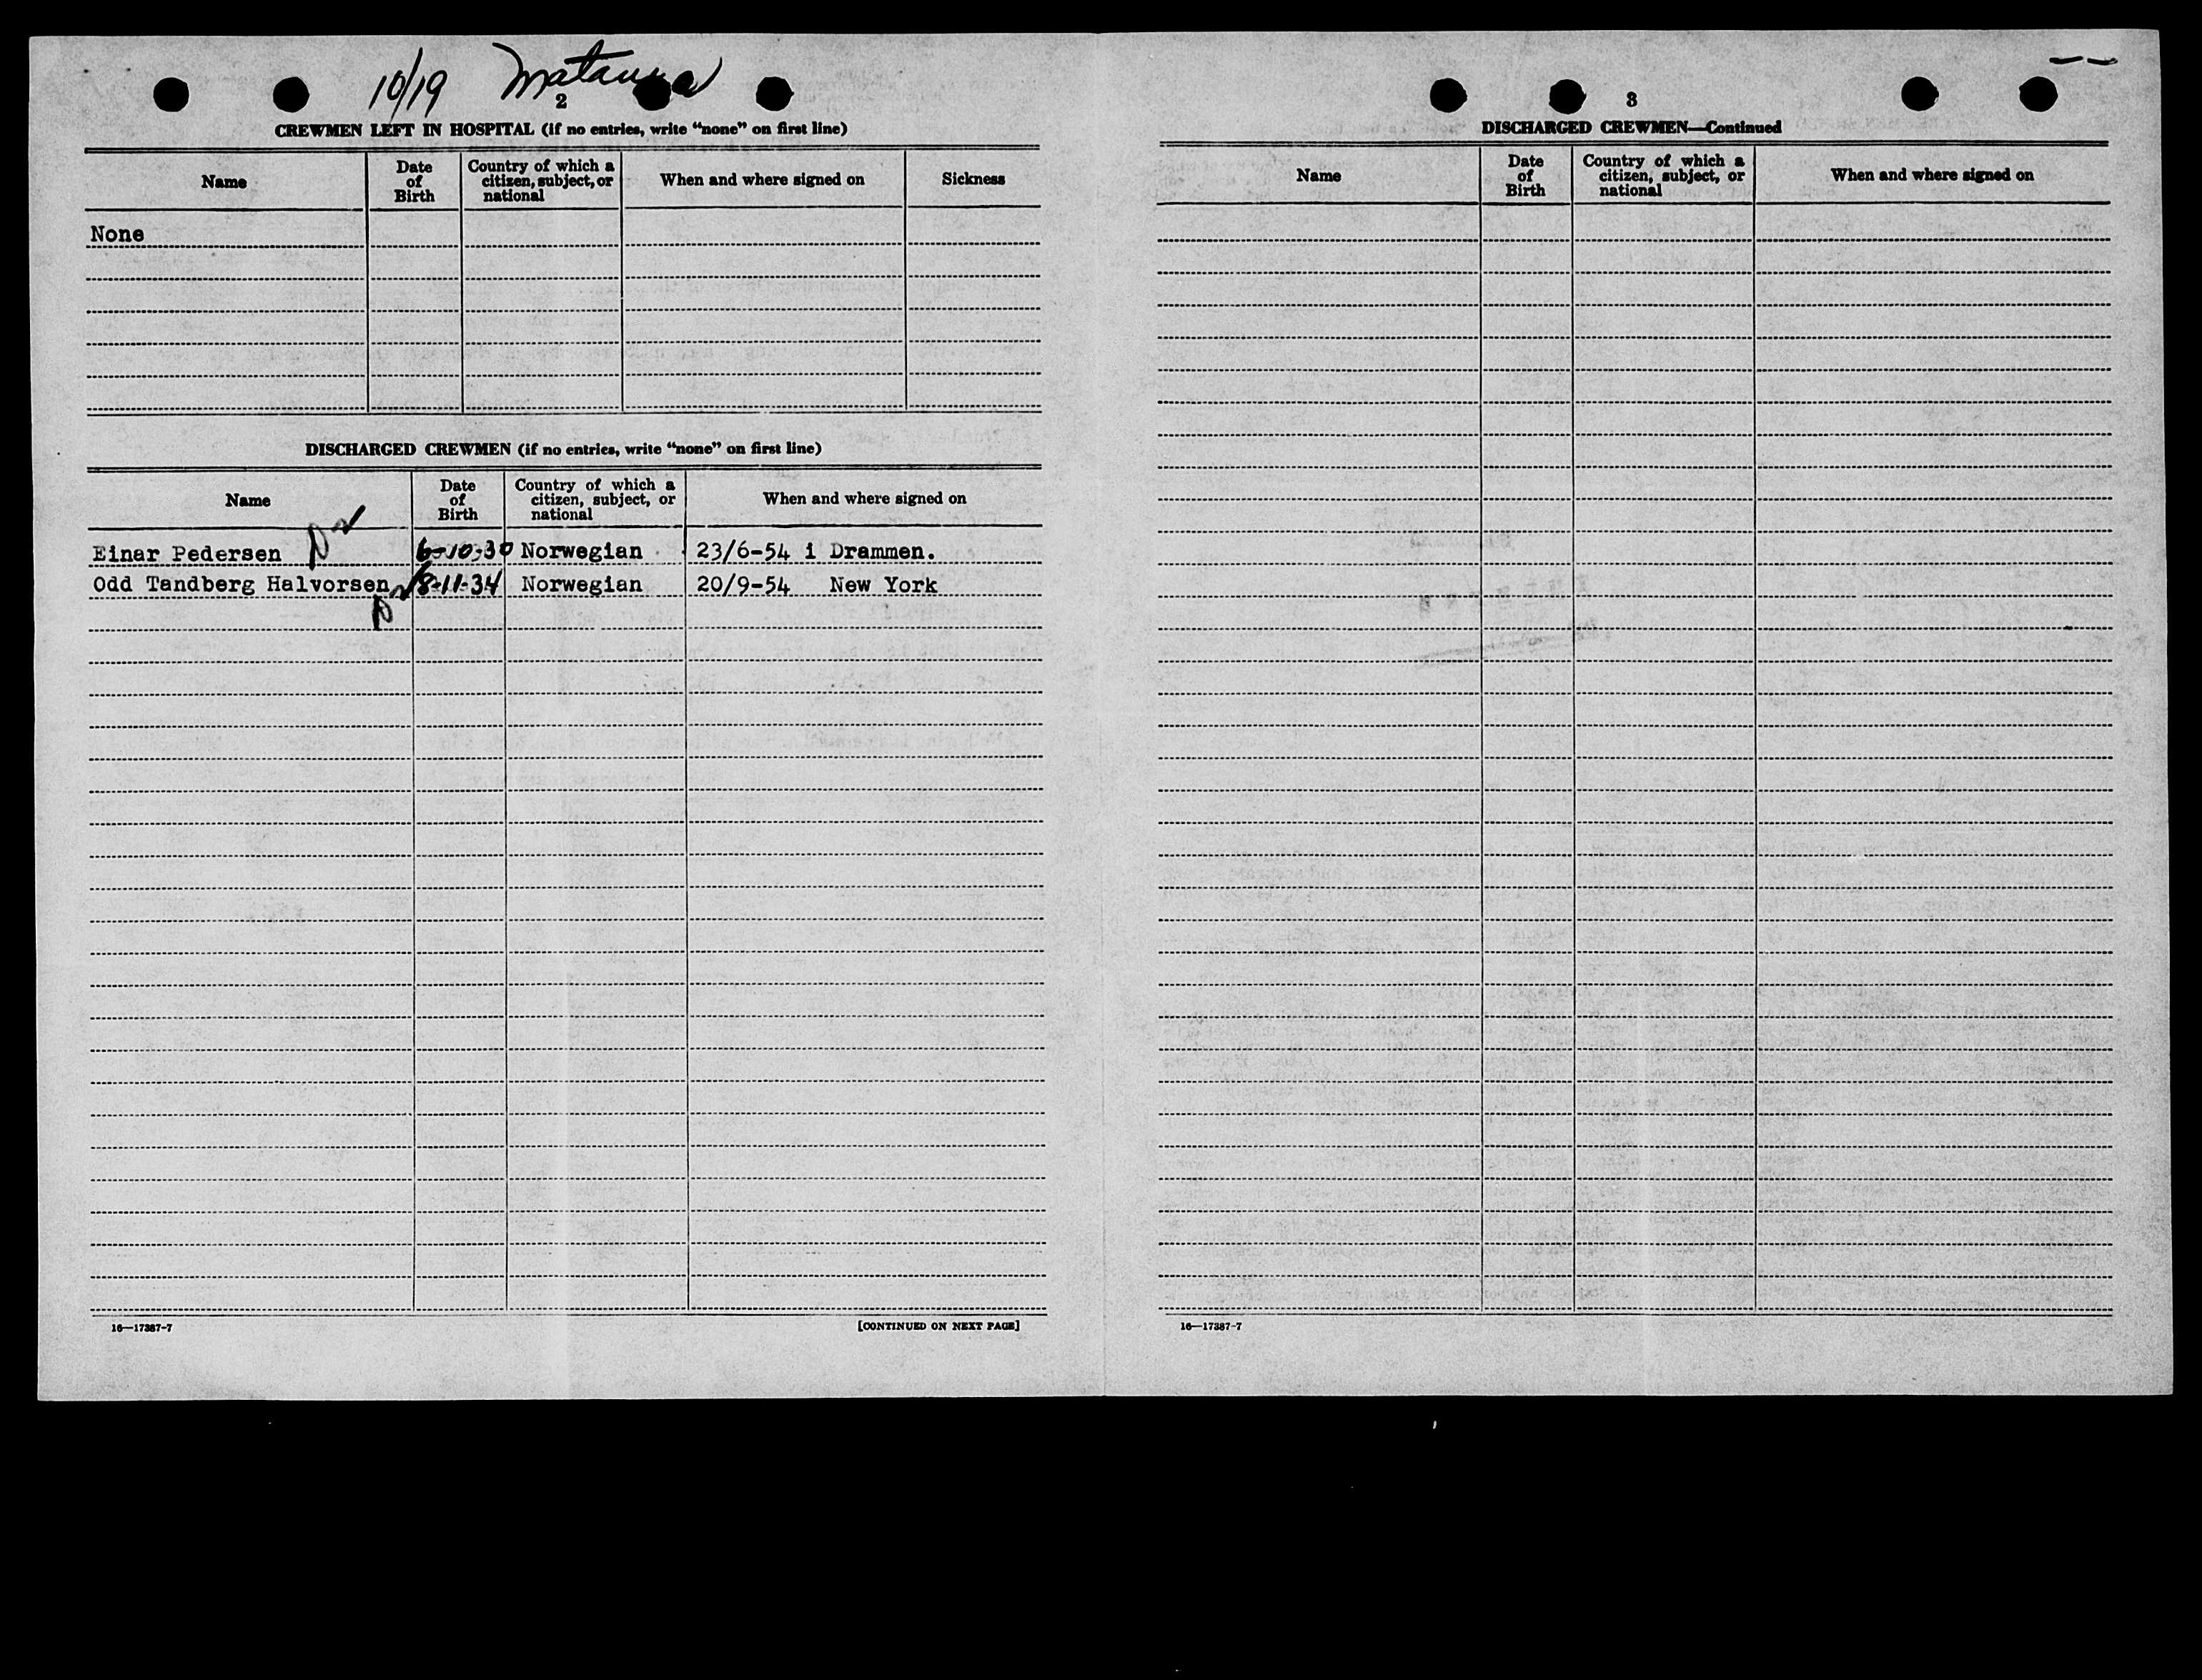 10/19
2
CREWMEN LEFT IN HOSPITAL (if no entries, write “none” on first line)
Name
Date of Birth
Country of which a citizen, subject, or national
When and where signed on
Sickness
None
DISCHARGED CREWMEN (if no entries, write “none” on first line)
Name
Date of Birth
Country of which a citizen, subject, or national
When and where signed on
Einar Pedersen 6-10-30 Norwegian 23/6-54 i Drammen.
Odd Tandberg Halvorsen 18-11-34 Norwegian 20/9-54 New York
16—17387-7
[CONTINUED ON NEXT PAGE]
3
DISCHARGED CREWMEN—Continued
Name
Date of Birth
Country of which a citizen, subject, or national
When and where signed on
16—17387-7